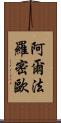 阿爾法
羅密歐